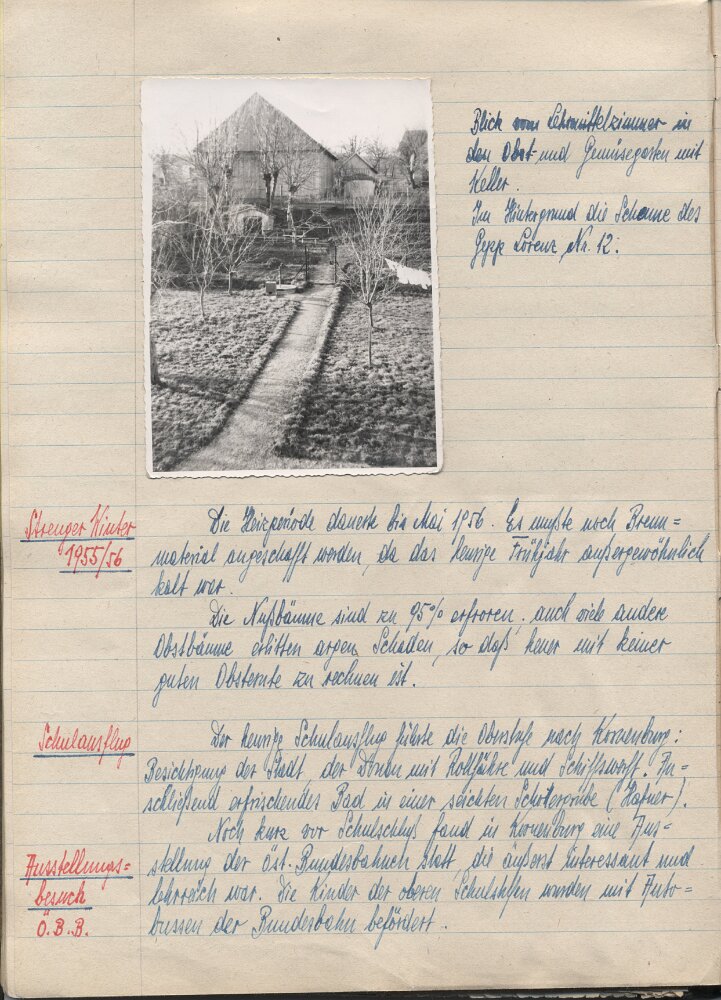 Blick vom Lehrmittelzimmer in
den Obst- und Gemüsegarten mit
Keller.
Im Hintergrund die Scheune des
Gepp Lorenz, Nr. 12.
Strenger Winter
1955/56
Die Heizperiode dauerte bis Mai 1956. Es mußte noch Brenn=
material angeschafft werden, da das heurige Frühjahr außergewöhnlich
kalt war.
Die Nußbäume sind zu 95% erfroren, auch viele andere
Obstbäume erlitten argen Schaden, so daß heuer mit keiner
guten Obsternte zu rechnen ist.
Schulausflug
Der heurige Schulausflug führte die Oberstufe nach Korneuburg:
Besichtigung der Stadt, der Donau mit Rollfähre und Schiffswerft. An=
schließend erfrischendes Bad in einer seichten Schottergrube (Hafner).
Noch kurz vor Schulschluß fand in Korneuburg eine Aus=
Ausstellungs=
besuch
Ö.B.B.
stellung der öst. Bundesbahnen statt, die äußerst interessant und
lehrreich war. Die Kinder der oberen Schulstufen wurden mit Auto=
bussen der Bundesbahn befördert.